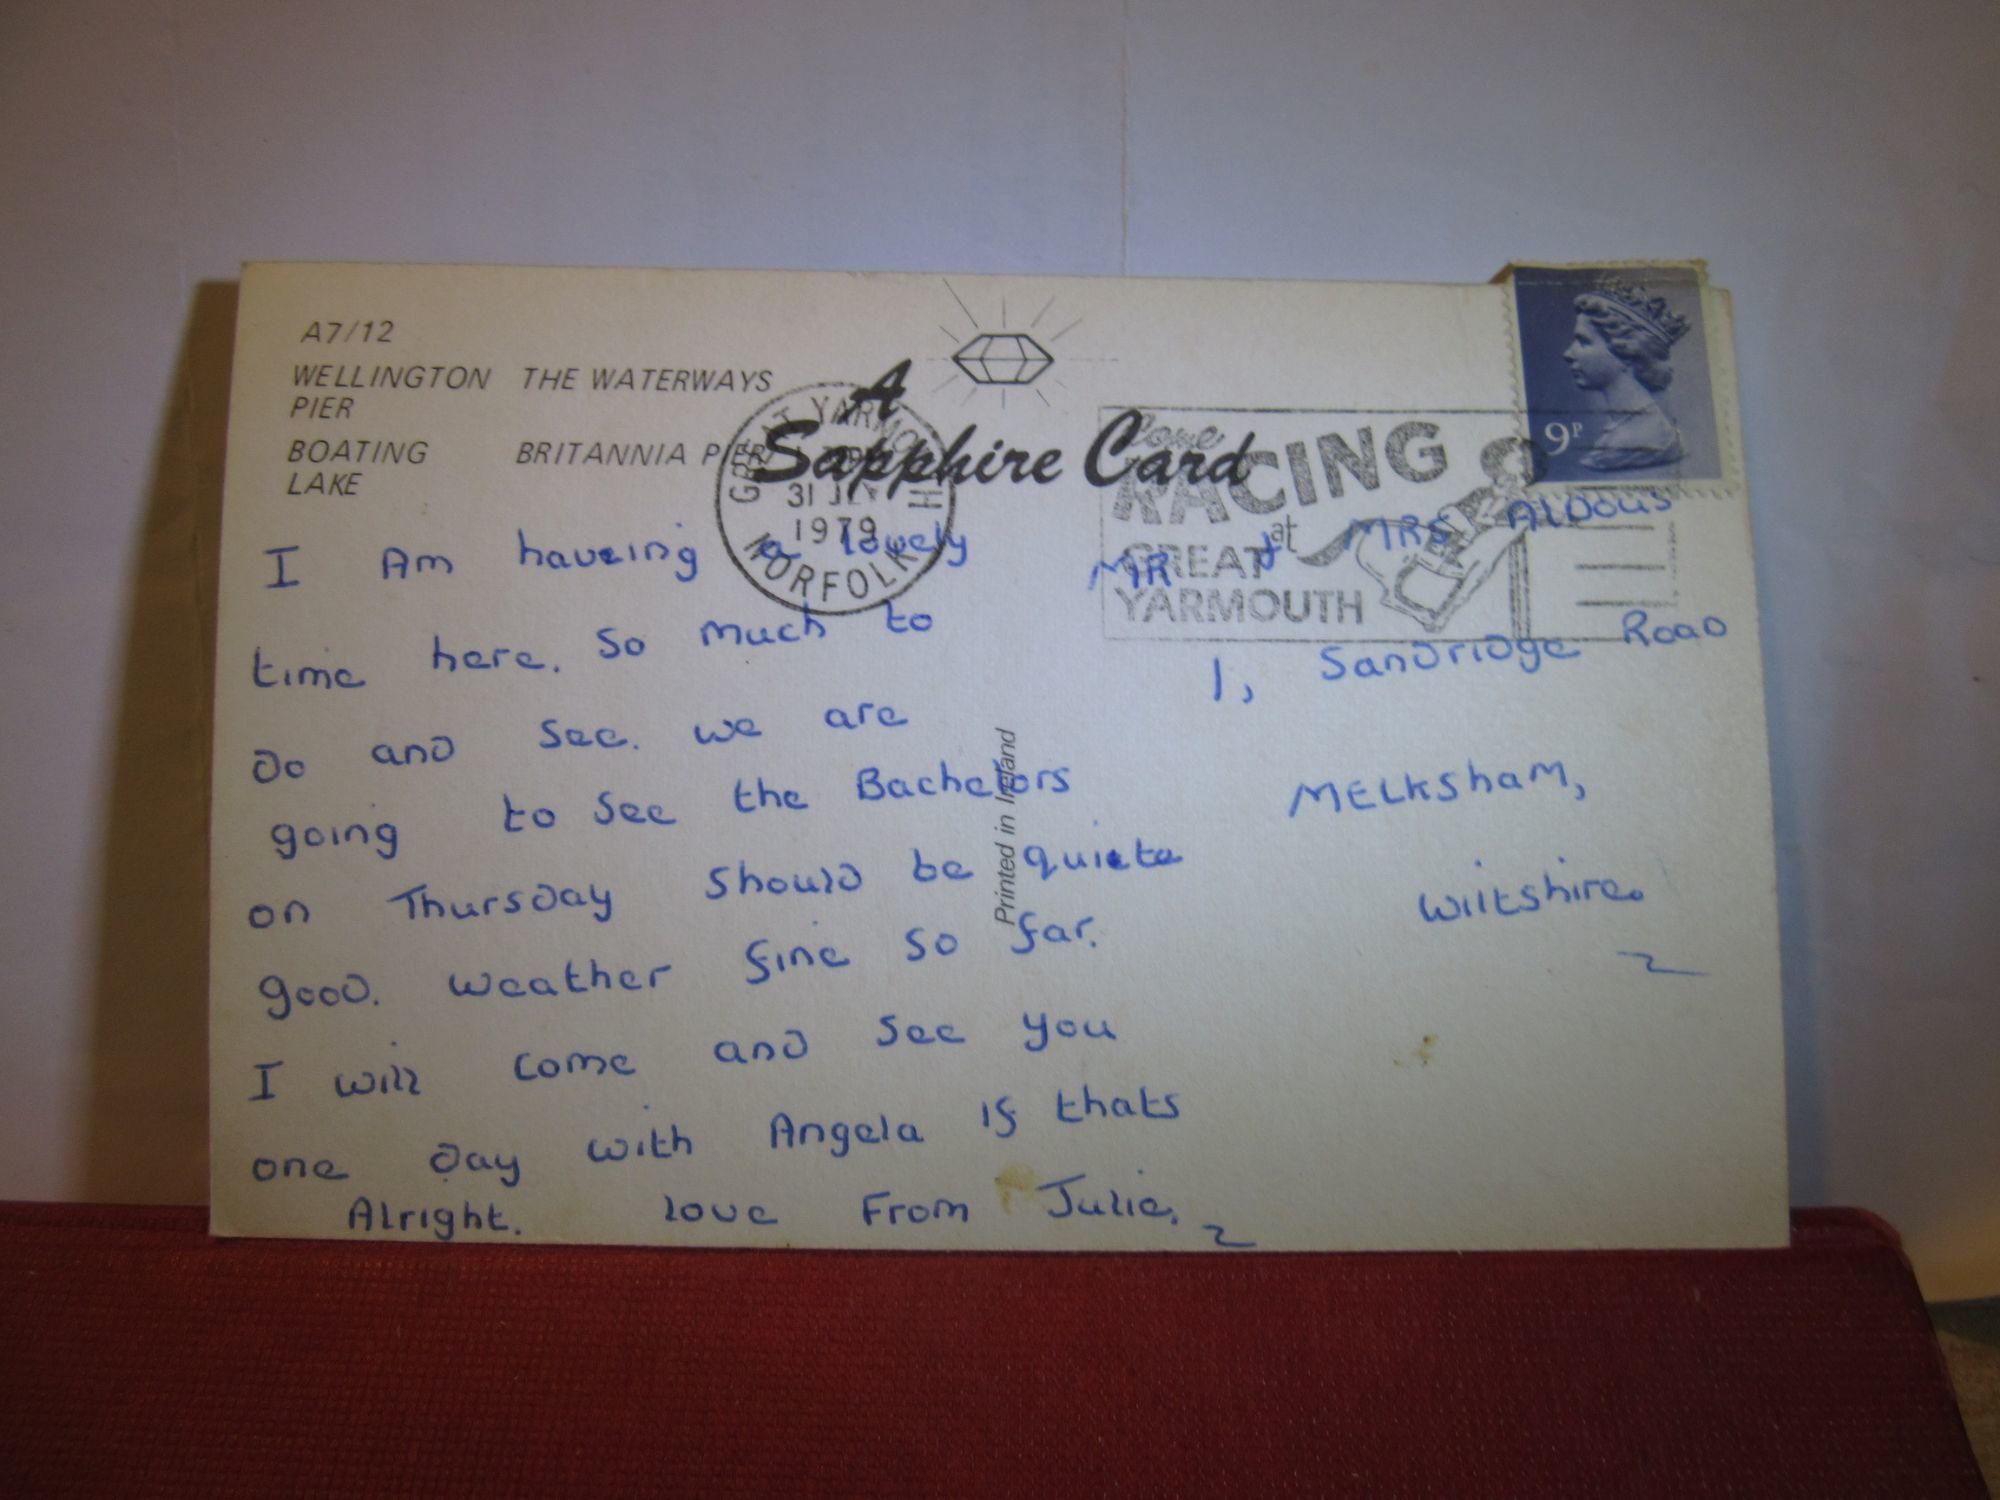 A7/12
WELLINGTON PIER
THE WATERWAYS
BOATING LAKE
BRITANNIA PIER
A
Sapphire Card
GREAT YARMOUTH
31 JLY
1979
NORFOLK
Come
RACING
at
GREAT
YARMOUTH
9P
I Am haveing a lovely
time here. So much to
do and see. we are
going to see the Bachelors
on Thursday should be quiete
good. weather fine so far.
I will come and see you
one day with Angela if thats
Alright. love From Julie.
Printed in Ireland
MR & MRS ALDOUS
1, Sandridge Road
MELKShaM,
wiltshire.